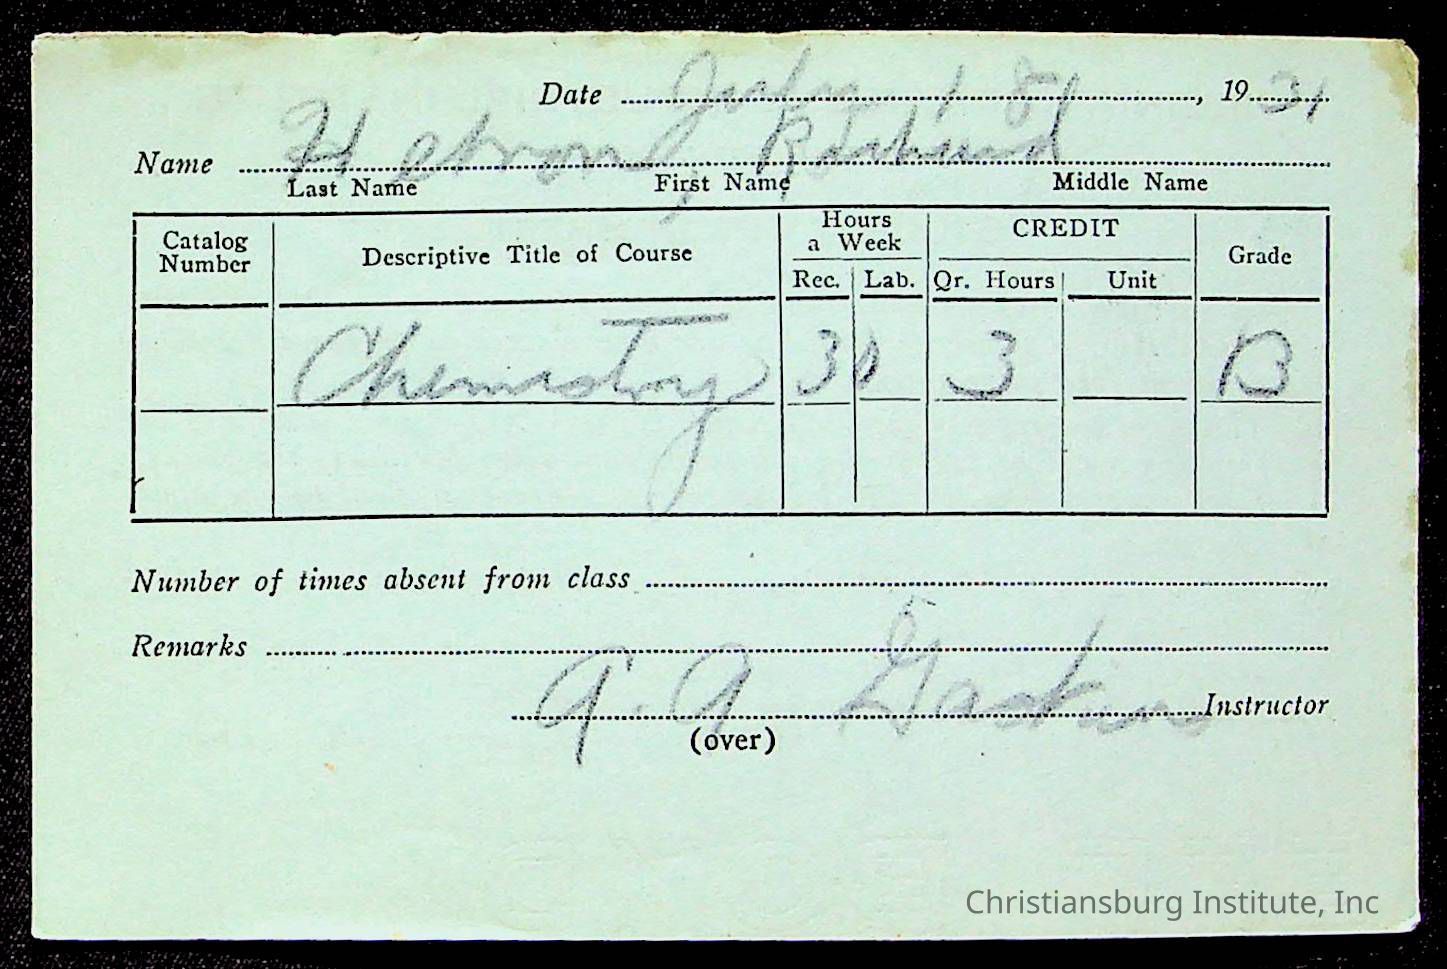 Date July 18, 1931
Name Hetron, Richard
Last Name First Name Middle Name
Catalog Number Descriptive Title of Course Hours a Week Rec. Lab. CREDIT Qr. Hours Unit Grade
Chemistry 3 0 3 B
Number of times absent from class
Remarks
A. A. Gaskins Instructor
(over)
Christiansburg Institute, Inc